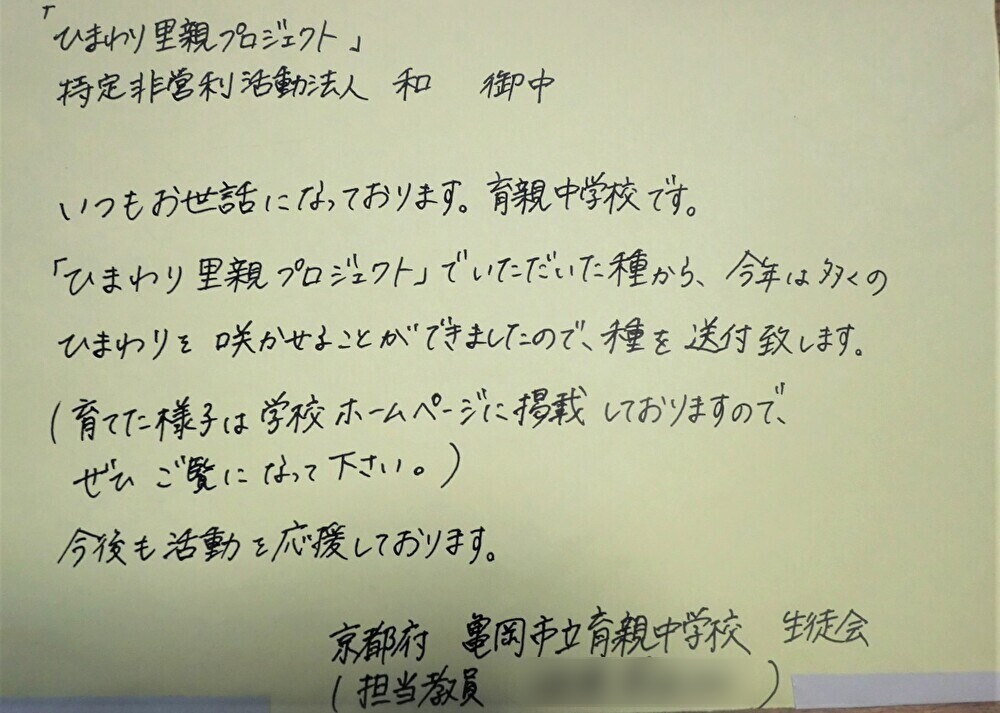 「ひまわり里親プロジェクト」
特定非営利活動法人 和 御中
いつもお世話になっております。育親中学校です。
「ひまわり里親プロジェクト」でいただいた種から、今年は多くの
ひまわりを咲かせることができましたので、種を送付致します。
(育てた様子は学校ホームページに掲載しておりますので、
ぜひご覧になって下さい。)
今後も活動を応援しております。
京都府 亀岡市立育親中学校 生徒会
(担当教員 )